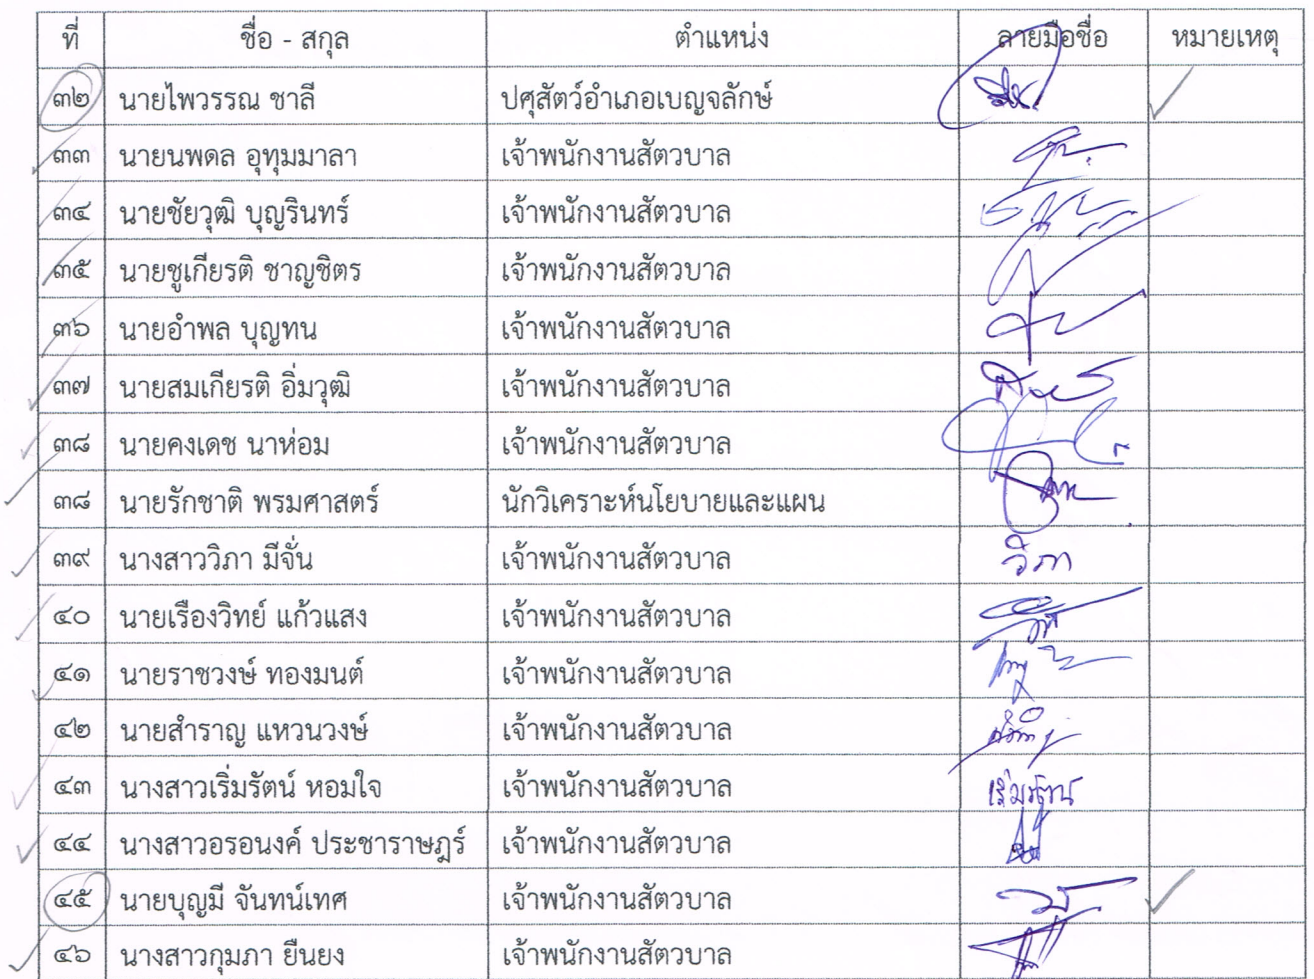 ที่ ชื่อ - สกุล ตำแหน่ง ลายมือชื่อ หมายเหตุ
๓๒ นายไพวรรณ ชาลี ปศุสัตว์อำเภอเบญจลักษ์
๓๓ นายนพดล อุทุมมาลา เจ้าพนักงานสัตวบาล
๓๔ นายชัยวุฒิ บุญรินทร์ เจ้าพนักงานสัตวบาล
๓๕ นายชูเกียรติ ชาญชิตร เจ้าพนักงานสัตวบาล
๓๖ นายอำพล บุญทน เจ้าพนักงานสัตวบาล
๓๗ นายสมเกียรติ อิ่มวุฒิ เจ้าพนักงานสัตวบาล
๓๘ นายคงเดช นาห่อม เจ้าพนักงานสัตวบาล
๓๘ นายรักชาติ พรมศาสตร์ นักวิเคราะห์นโยบายและแผน
๓๙ นางสาววิภา มีจั่น เจ้าพนักงานสัตวบาล วิภา
๔๐ นายเรืองวิทย์ แก้วแสง เจ้าพนักงานสัตวบาล
๔๑ นายราชวงษ์ ทองมนต์ เจ้าพนักงานสัตวบาล
๔๒ นายสำราญ แหวนวงษ์ เจ้าพนักงานสัตวบาล
๔๓ นางสาวเริ่มรัตน์ หอมใจ เจ้าพนักงานสัตวบาล เริ่มรัตน์
๔๔ นางสาวอรอนงค์ ประชาราษฎร์ เจ้าพนักงานสัตวบาล
๔๕ นายบุญมี จันทน์เทศ เจ้าพนักงานสัตวบาล
๔๖ นางสาวกุมภา ยืนยง เจ้าพนักงานสัตวบาล